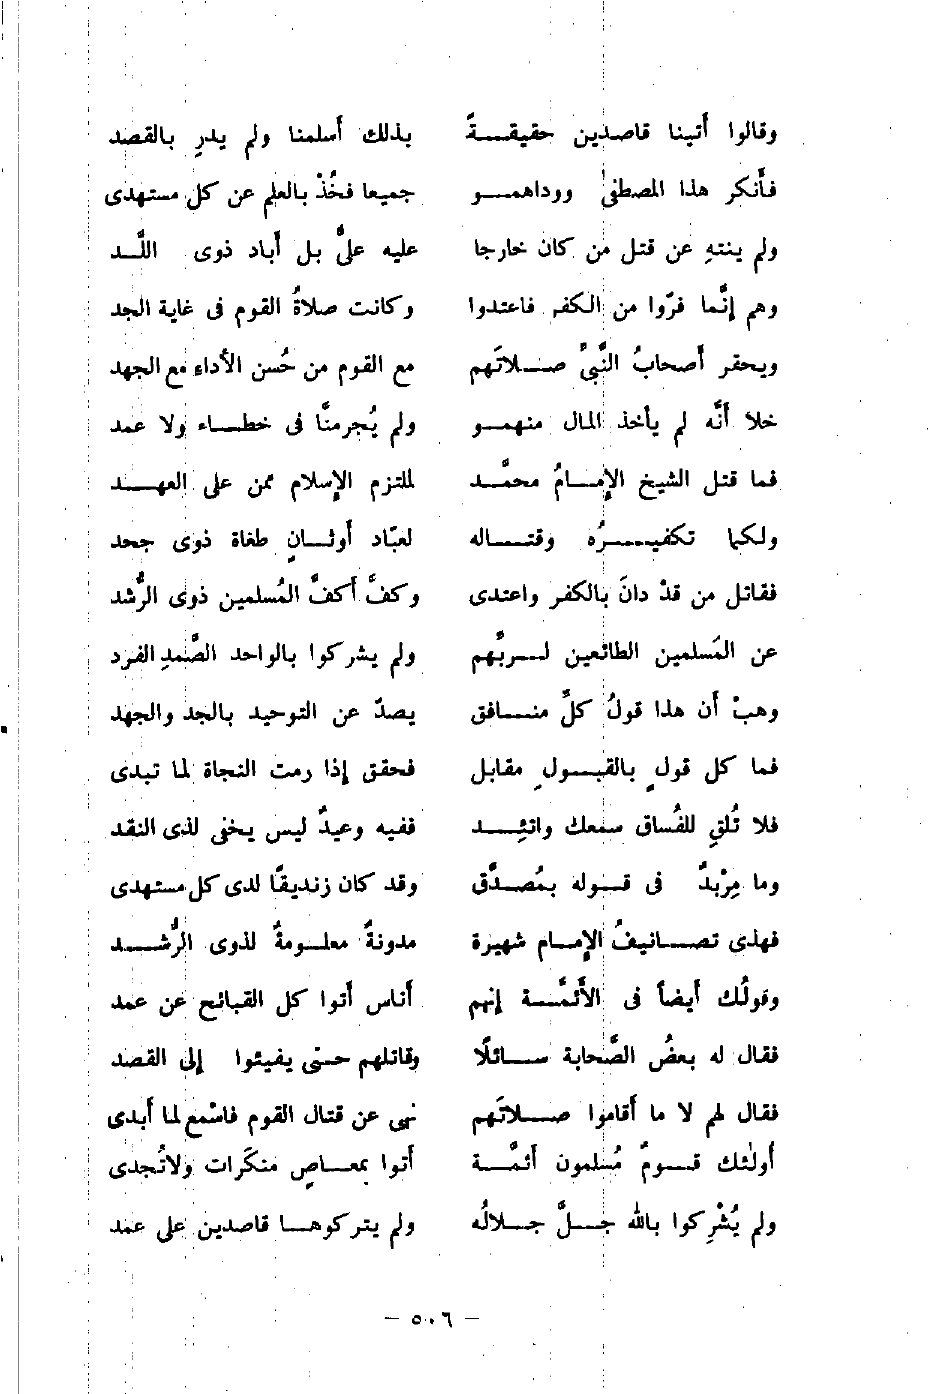 وقالوا أتينا قاصدين حقيقـــةً بذلك أسلمنا ولم يدرِ بالقصد
فأنكر هذا المصطفىٰ ووداهمــو جميعا فخُذْ بالعلم عن كل مستهدى
ولم ينتهِ عن قتل من كان خارجا عليه علىٌّ بل أباد ذوى اللَّــد
وهم إنَّما فرّوا من الكفر فاعتدوا وكانت صلاةُ القوم فى غاية الجد
ويحقر أصحابُ النَّبىِّ صــلاتَهم مع القوم من حُسن الأداء مع الجهد
خلا أنَّه لم يأخذ المال منهمــو ولم يُجرمنَّا فى خطــاء ولا عمد
فما قتل الشيخ الإمــامُ محمَّــد لملتزم الإسلام ممن على العهــد
ولكما تكفيــــرُه وقتـــاله لعبّاد أوثــانٍ طغاة ذوى جحد
فقاتل من قدْ دانَ بالكفر واعتدى وكفَّ أكفَّ المُسلمين ذوى الرُّشد
عن المَسلمين الطائعين لـــربِّهم ولم يشركوا بالواحد الصَّمدِ الفرد
وهبْ أن هذا قولُ كلِّ منــافق يصدّ عن التوحيد بالجد والجهد
فما كل قولٍ بالقبــولِ مقابل فحقق إذا رمت النجاة لما تبدى
فلا تُلقِ للفُساق سمعك واتئِــد ففيه وعيدٌ ليس يخفى لذى النقد
وما مِرْبدٌ فى قــوله بمُصــدَّق وقد كان زنديقًا لدى كل مستهدى
فهذى تصــانيفُ الإمــام شهيرة مدونةٌ معلــومةٌ لذوى الرُّشــد
وقولُك أيضاً فى الأئمَّــة إنهم أناس أتوا كل القبائح عن عمد
فقال له بعضُ الصَّحابة ســائلًا وقاتلهم حتى يفيئوا إلى القصد
فقال لهم لا ما أقاموا صــلاتَهم نهى عن قتال القوم فاسْمع لما أبدى
أولئك قــومٌ مُسلمون أئمَّــة أتوا بمعــاصٍ منكَرات ولاتُجدى
ولم يُشْرِكوا بالله جــلَّ جــلالُه ولم يتركوهــا قاصدين على عمد
— ٥٠٦ —